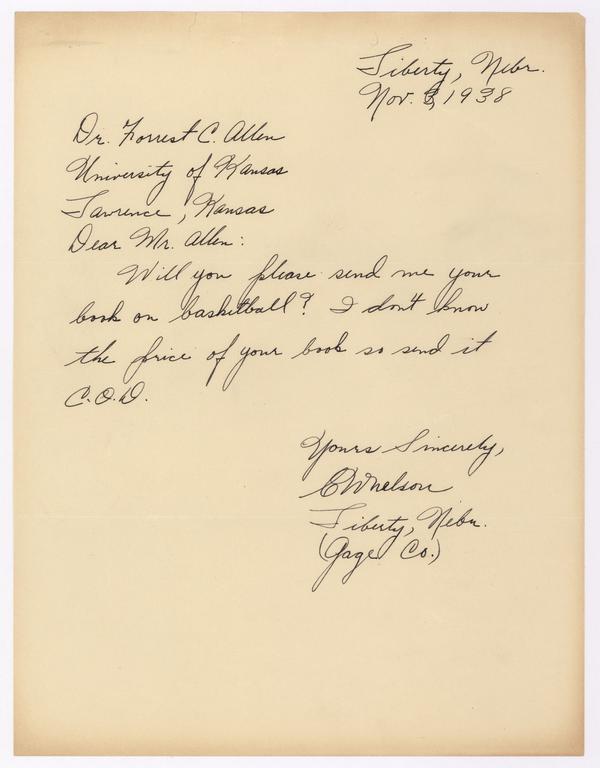 Liberty, Nebr.
Nov. 3, 1938
Dr. Forrest C. Allen
University of Kansas
Lawrence, Kansas
Dear Mr. Allen:
Will you please send me your
book on basketball? I don't know
the price of your book so send it
C.O.D.
Yours Sincerely,
C W Nelson
Liberty, Nebr.
(Gage Co.)